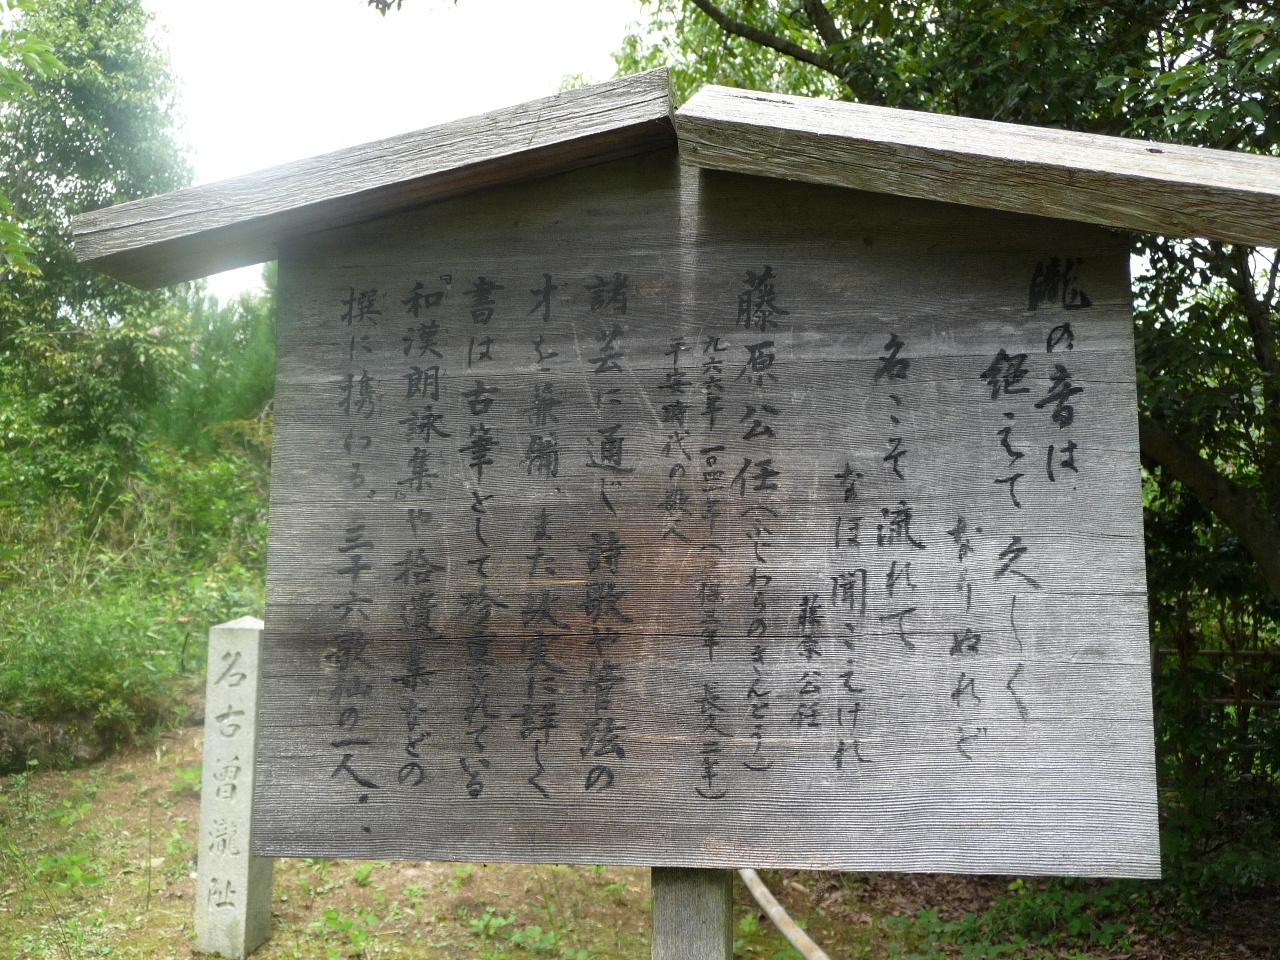 瀧の音は
絶えて久しく
なりぬれど
名こそ流れて
なほ聞こえけれ
藤原公任
藤原公任（ふじわらのきんとう）
九六六年 一〇四一年（康保三年 長久二年）
平安時代の歌人
諸芸に通じ詩歌や管弦の
才を兼備、また故実に詳しく
書は古筆として珍重されている
『和漢朗詠集』や拾遺集などの
撰に携わる。三十六歌仙の一人。
名古曽瀧址